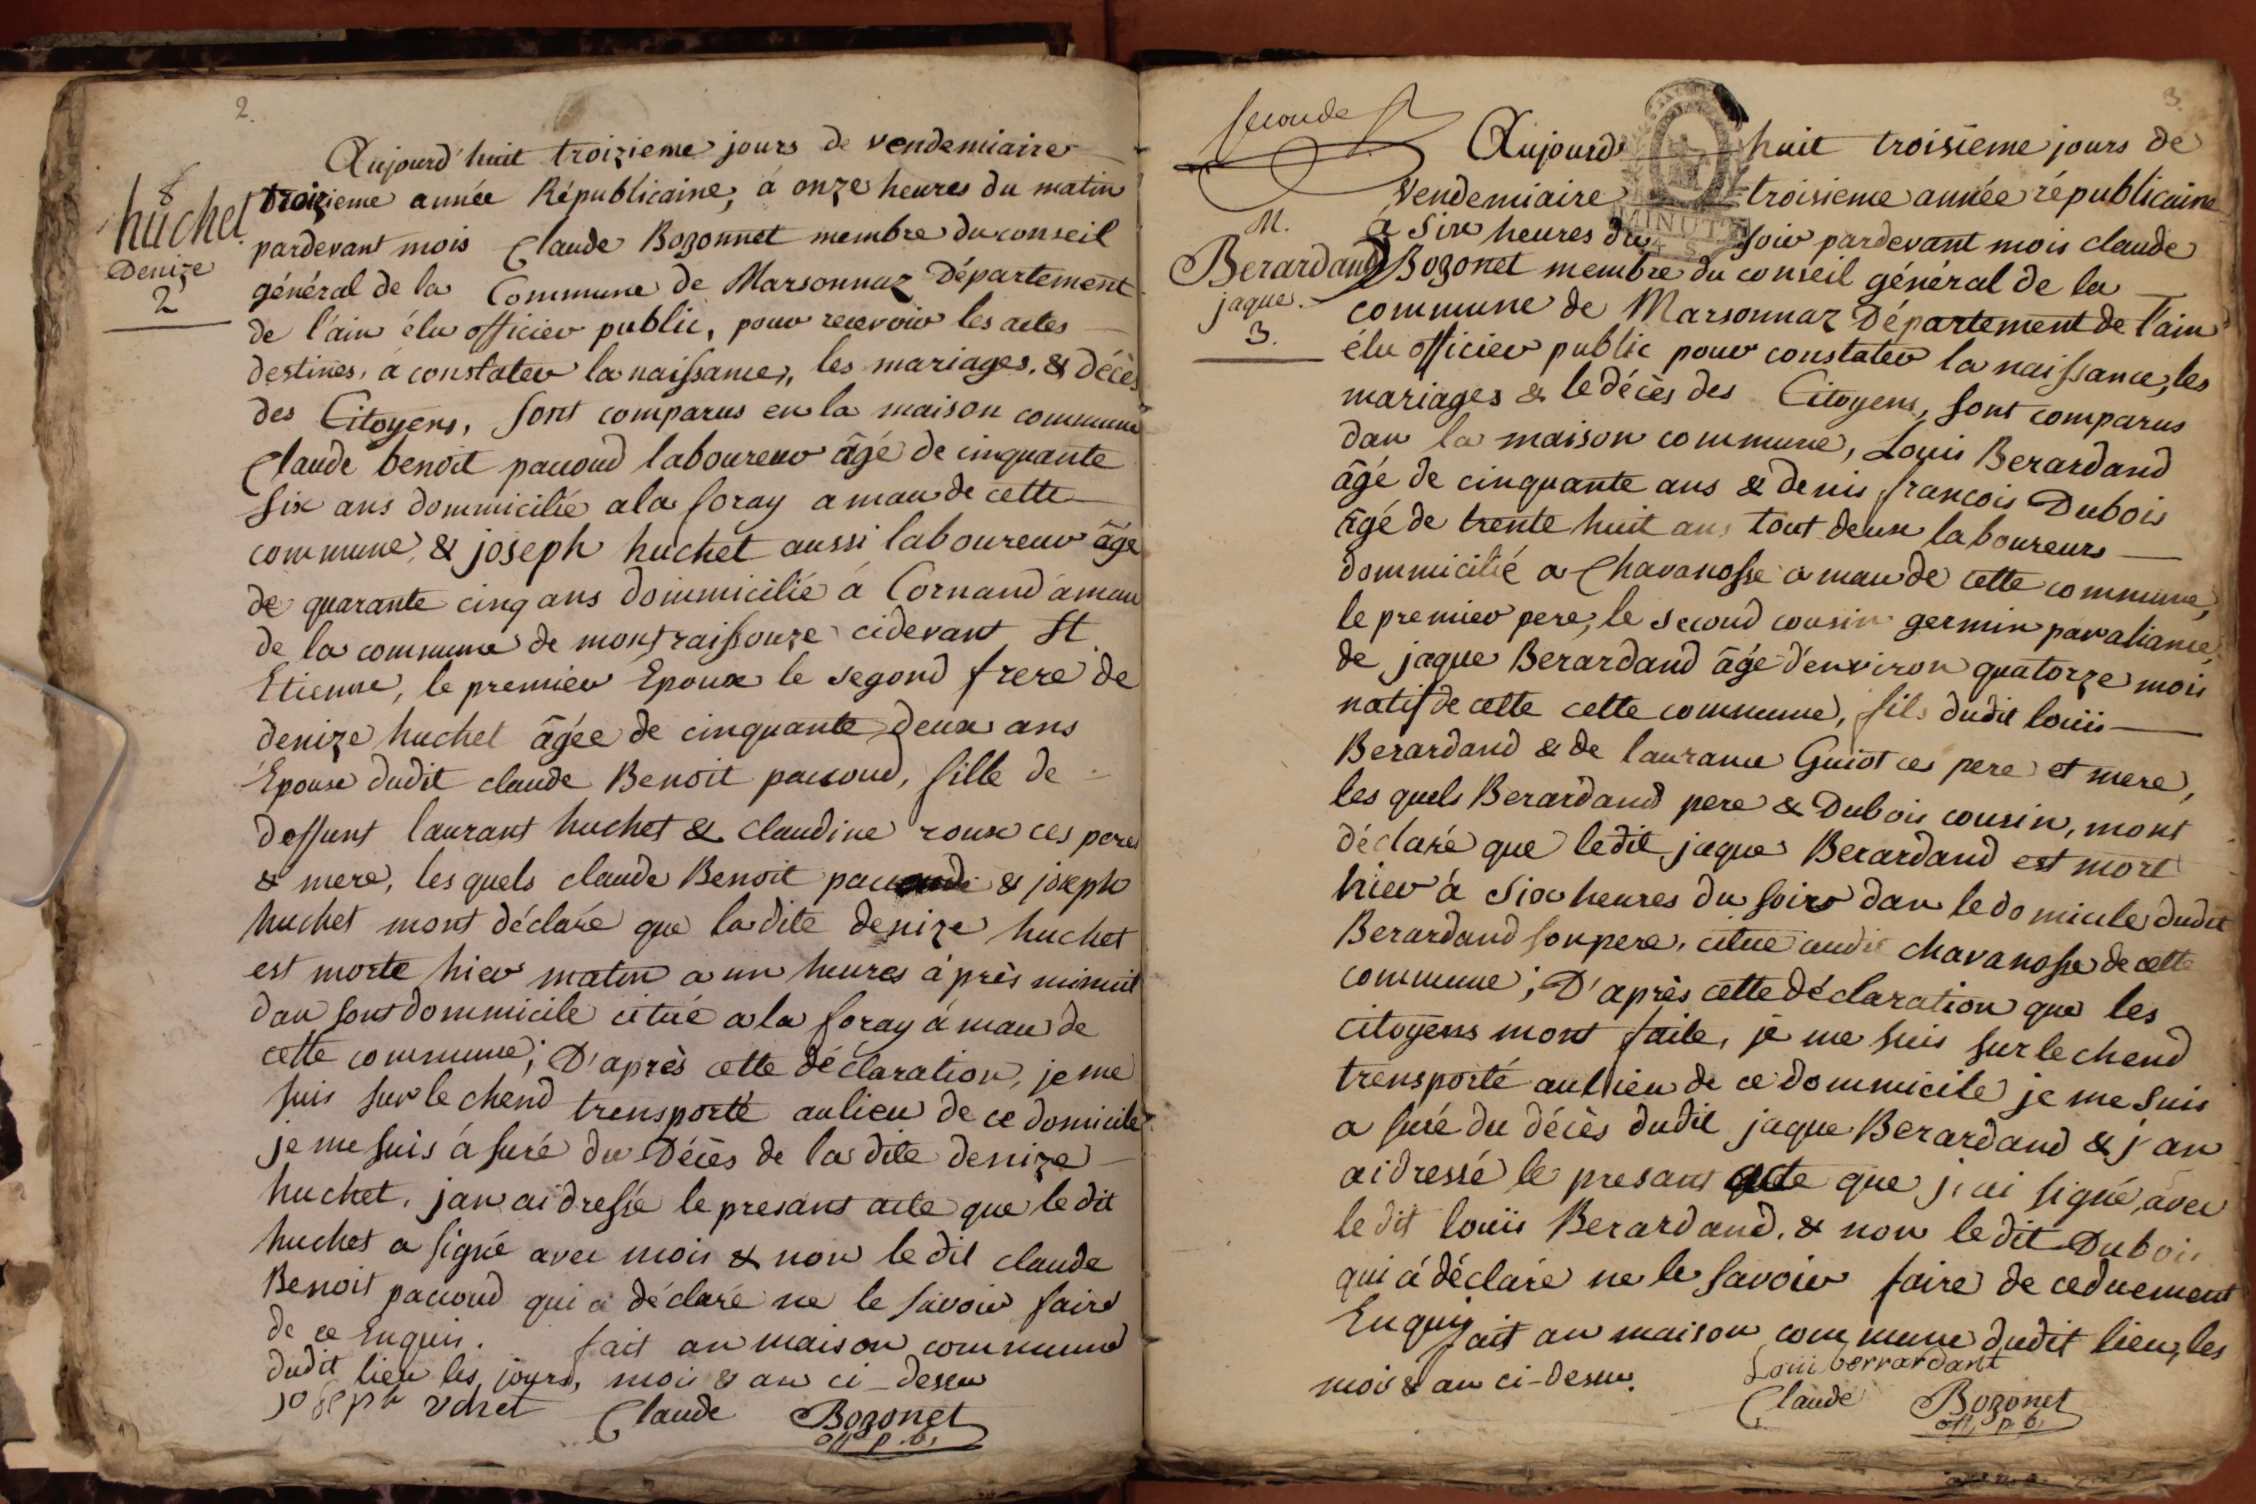 2.
Aujourd'huit troizieme jours de vendemiaire
troizieme année Républicaine, à onze heures du matin
8
huchet
Denize
2
pardevant mois Claude Bozonnet membre du conseil
général de la Commune de Marsonnaz Département
de l'ain élu officier public, pour recevoir les actes
destines, a constater la naissance, les mariages, & décès
des Citoyens, sont comparus en la maison commune
Claude benoit pacoud laboureur âgé de cinquante
six ans dommicilié a la foray a mau de cette
commune, & joseph huchet aussi laboureur âgé
de quarante cinq ans dommicilié á Cornand a mau
de la commune de cidevant St
Etienne, le premier Epoux le segond frere de
denize huchet âgée de cinquante deux ans
Epouse dudit claude Benoit pacoud, fille de
deffunt laurant huchet & claudine roux ces pere
& mere, les quels claude Benoit & joseph
huchet mont déclaré que la dite denize huchet
est morte hier matin a un heures áprès minuit
dan sont dommicile citué a la foray á mau de
cette commune; D'après cette déclaration, je me
suis sur le chend trensporté au lieu de ce domicile
je me suis ásuré du Décès de la dite denize
huchet, jan ai dressé le presant acte que le dit
huchet a signé avec mois & non le dit claude
Benoit pacoud qui a déclaré ne le savoir faire
de ce Enquis. fait an maison commune
dudit lieu les jours, mois & an ci-dessu
joseph uchet Claude Bozonet
off p. b.
3.
seconde
Aujourdhuit troisieme jours de
Vendemiaire troisieme année républicaine
MINUTE
M.
Berardand
jaque.
3.
a six heures du soir pardevant mois claude
Bozonet membre du conseil général de la
commune de Marsonnaz Département de l'ain
élu officier public pour constater la naissance, les
mariages & le décès des Citoyens, sont comparus
dan la maison commune, Louis Berardand
âgé de cinquante ans & denis francois Dubois
âgé de trente huit ans tout deux laboureurs
dommicilié a Chavanosse a mau de cette commune,
le premier pere, le second cousin germin par aliance,
de jaque Berardand âgé d'environ quatorze mois
natif de cette cette commune, fils dudit louïs
Berardand & de laurance Guiot ces pere et mere,
les quels Berardand pere & Dubois cousin, mont
déclaré que ledit jaque Berardand est mort
hier á six heures du soir dan le domicile dudit
Berardand son pere, citue audit chavanosse de cette
commune; D'après cette déclaration que les
citoyens mont faite, je me suis sur le chend
trensporté aulieu de ce dommicile je me suis
a suré du décès dudit jaque Berardand & j'an
ai dressé le presant acte que j'ai signé, avec
le dit louïs Berardand, & non le dit Dubois
qui á déclaré ne le savoir faire de ce duement
Enquis fait an maison commune dudit lieu, les
mois & an ci-dessu.
Loui berrardant
Claude Bozonet
off p. b.